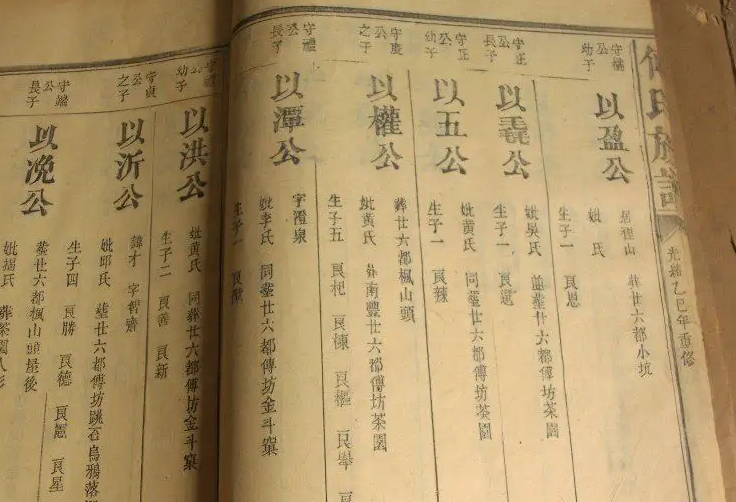 氏族譜
光緒乙巳年重修
守端公幼子
以盈公
居程山 葬廿六都小坑
妣 氏
生子一 良思
守正公長子
以毳公
妣吳氏 葬廿六都傅坊茶園
生子一 良選
守正公幼子
以五公
妣黃氏 同塟廿六都傅坊茶園
生子一 良辣
守虔公之子
以權公
葬廿六都楓山頭
妣黃氏 葬南豐廿六都傅坊茶園
生子五 良杞 良棟 良樞 良舉 良
守禮公長子
以潭公
字澄泉
妣李氏 同塟廿六都傅坊金斗窠
生子一 良猷
守禮公幼子
以洪公
妣黃氏 同葬廿六都傅坊金斗窠
生子二 良善 良新
守貞公之子
以沂公
諱才 字智齋
妣邱氏 塟廿六都傅坊跳石烏鴉落
生子四 良勝 良德 良憲 良星
守端公長子
以浼公
塟廿六都楓山頭屋後
妣揭氏 葬茶園人形